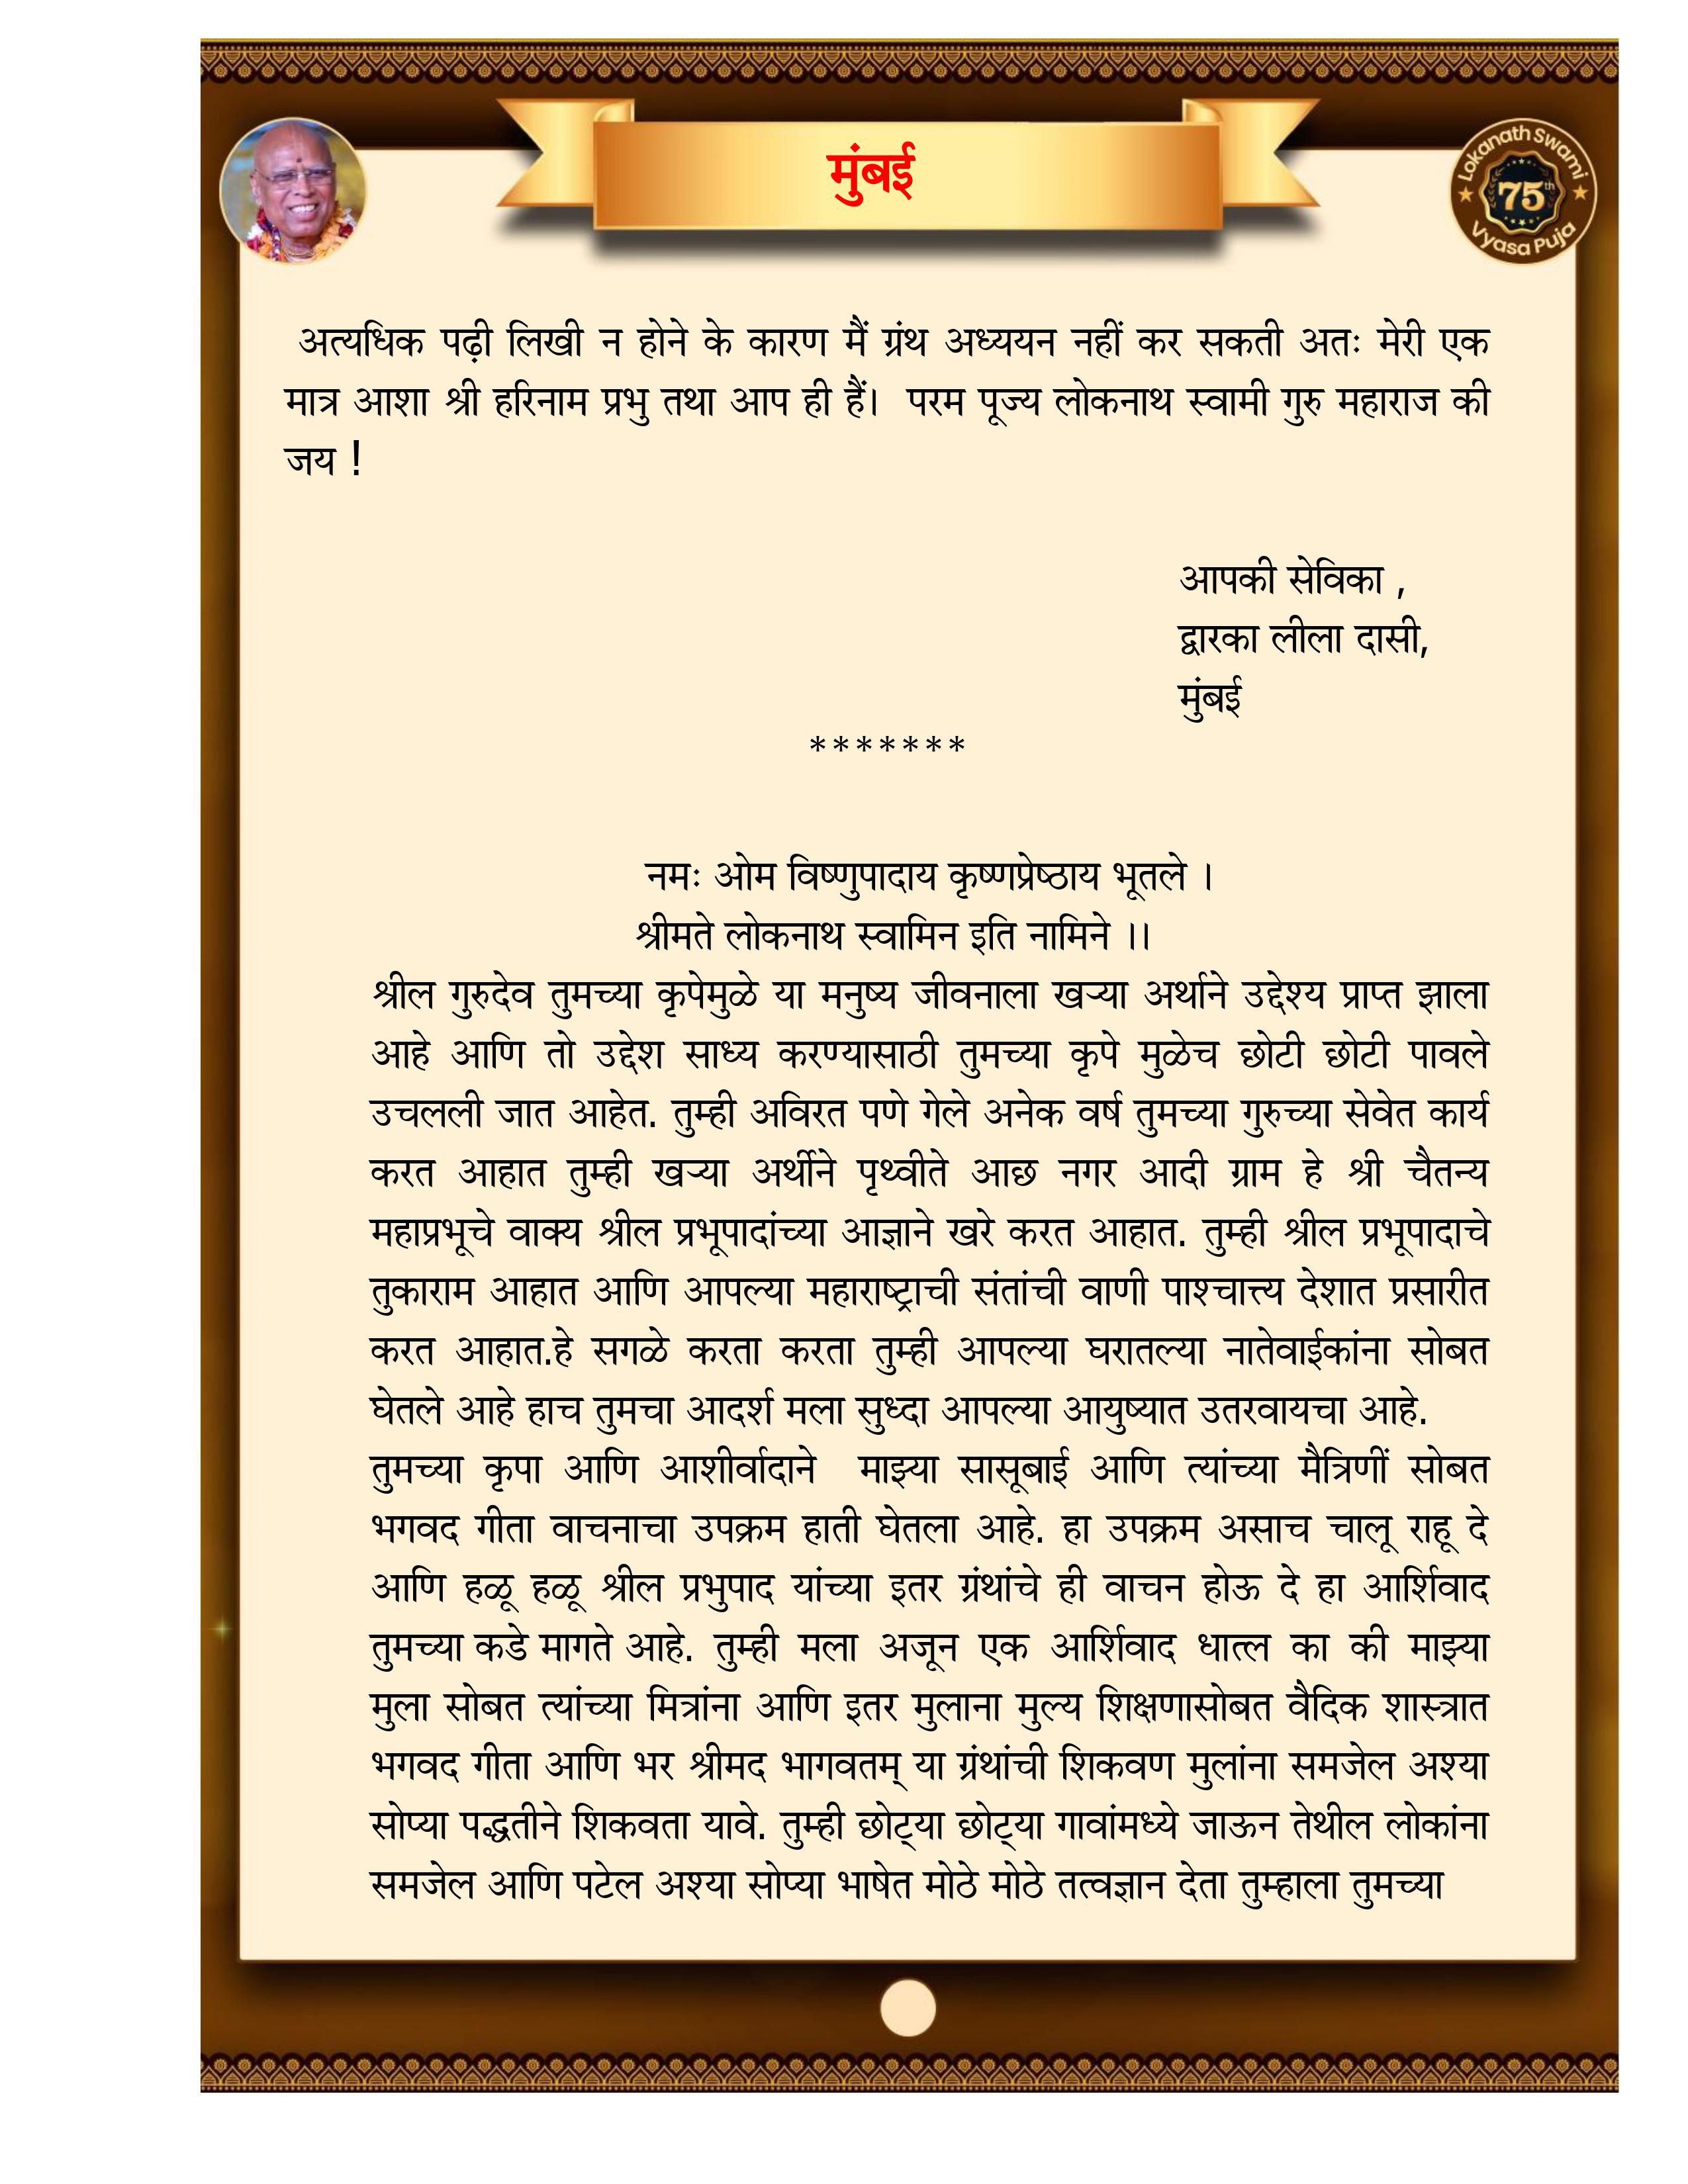 मुंबई
Lokanath Swami
75th
Vyasa Puja
अत्यधिक पढ़ी लिखी न होने के कारण मैं ग्रंथ अध्ययन नहीं कर सकती अतः मेरी एक
मात्र आशा श्री हरिनाम प्रभु तथा आप ही हैं। परम पूज्य लोकनाथ स्वामी गुरु महाराज की
जय !
आपकी सेविका ,
द्वारका लीला दासी,
मुंबई
*******
नमः ओम विष्णुपादाय कृष्णप्रेष्ठाय भूतले ।
श्रीमते लोकनाथ स्वामिन इति नामिने ।।
श्रील गुरुदेव तुमच्या कृपेमुळे या मनुष्य जीवनाला खऱ्या अर्थाने उद्देश्य प्राप्त झाला
आहे आणि तो उद्देश साध्य करण्यासाठी तुमच्या कृपे मुळेच छोटी छोटी पावले
उचलली जात आहेत. तुम्ही अविरत पणे गेले अनेक वर्ष तुमच्या गुरुच्या सेवेत कार्य
करत आहात तुम्ही खऱ्या अर्थीने पृथ्वीते आछ नगर आदी ग्राम हे श्री चैतन्य
महाप्रभूचे वाक्य श्रील प्रभूपादांच्या आज्ञाने खरे करत आहात. तुम्ही श्रील प्रभूपादाचे
तुकाराम आहात आणि आपल्या महाराष्ट्राची संतांची वाणी पाश्चात्त्य देशात प्रसारीत
करत आहात.हे सगळे करता करता तुम्ही आपल्या घरातल्या नातेवाईकांना सोबत
घेतले आहे हाच तुमचा आदर्श मला सुध्दा आपल्या आयुष्यात उतरवायचा आहे.
तुमच्या कृपा आणि आशीर्वादाने माझ्या सासूबाई आणि त्यांच्या मैत्रिणीं सोबत
भगवद गीता वाचनाचा उपक्रम हाती घेतला आहे. हा उपक्रम असाच चालू राहू दे
आणि हळू हळू श्रील प्रभुपाद यांच्या इतर ग्रंथांचे ही वाचन होऊ दे हा आर्शिवाद
तुमच्या कडे मागते आहे. तुम्ही मला अजून एक आर्शिवाद धात्ल का की माझ्या
मुला सोबत त्यांच्या मित्रांना आणि इतर मुलाना मुल्य शिक्षणासोबत वैदिक शास्त्रात
भगवद गीता आणि भर श्रीमद भागवतम् या ग्रंथांची शिकवण मुलांना समजेल अश्या
सोप्या पद्धतीने शिकवता यावे. तुम्ही छोट्या छोट्या गावांमध्ये जाऊन तेथील लोकांना
समजेल आणि पटेल अश्या सोप्या भाषेत मोठे मोठे तत्वज्ञान देता तुम्हाला तुमच्या